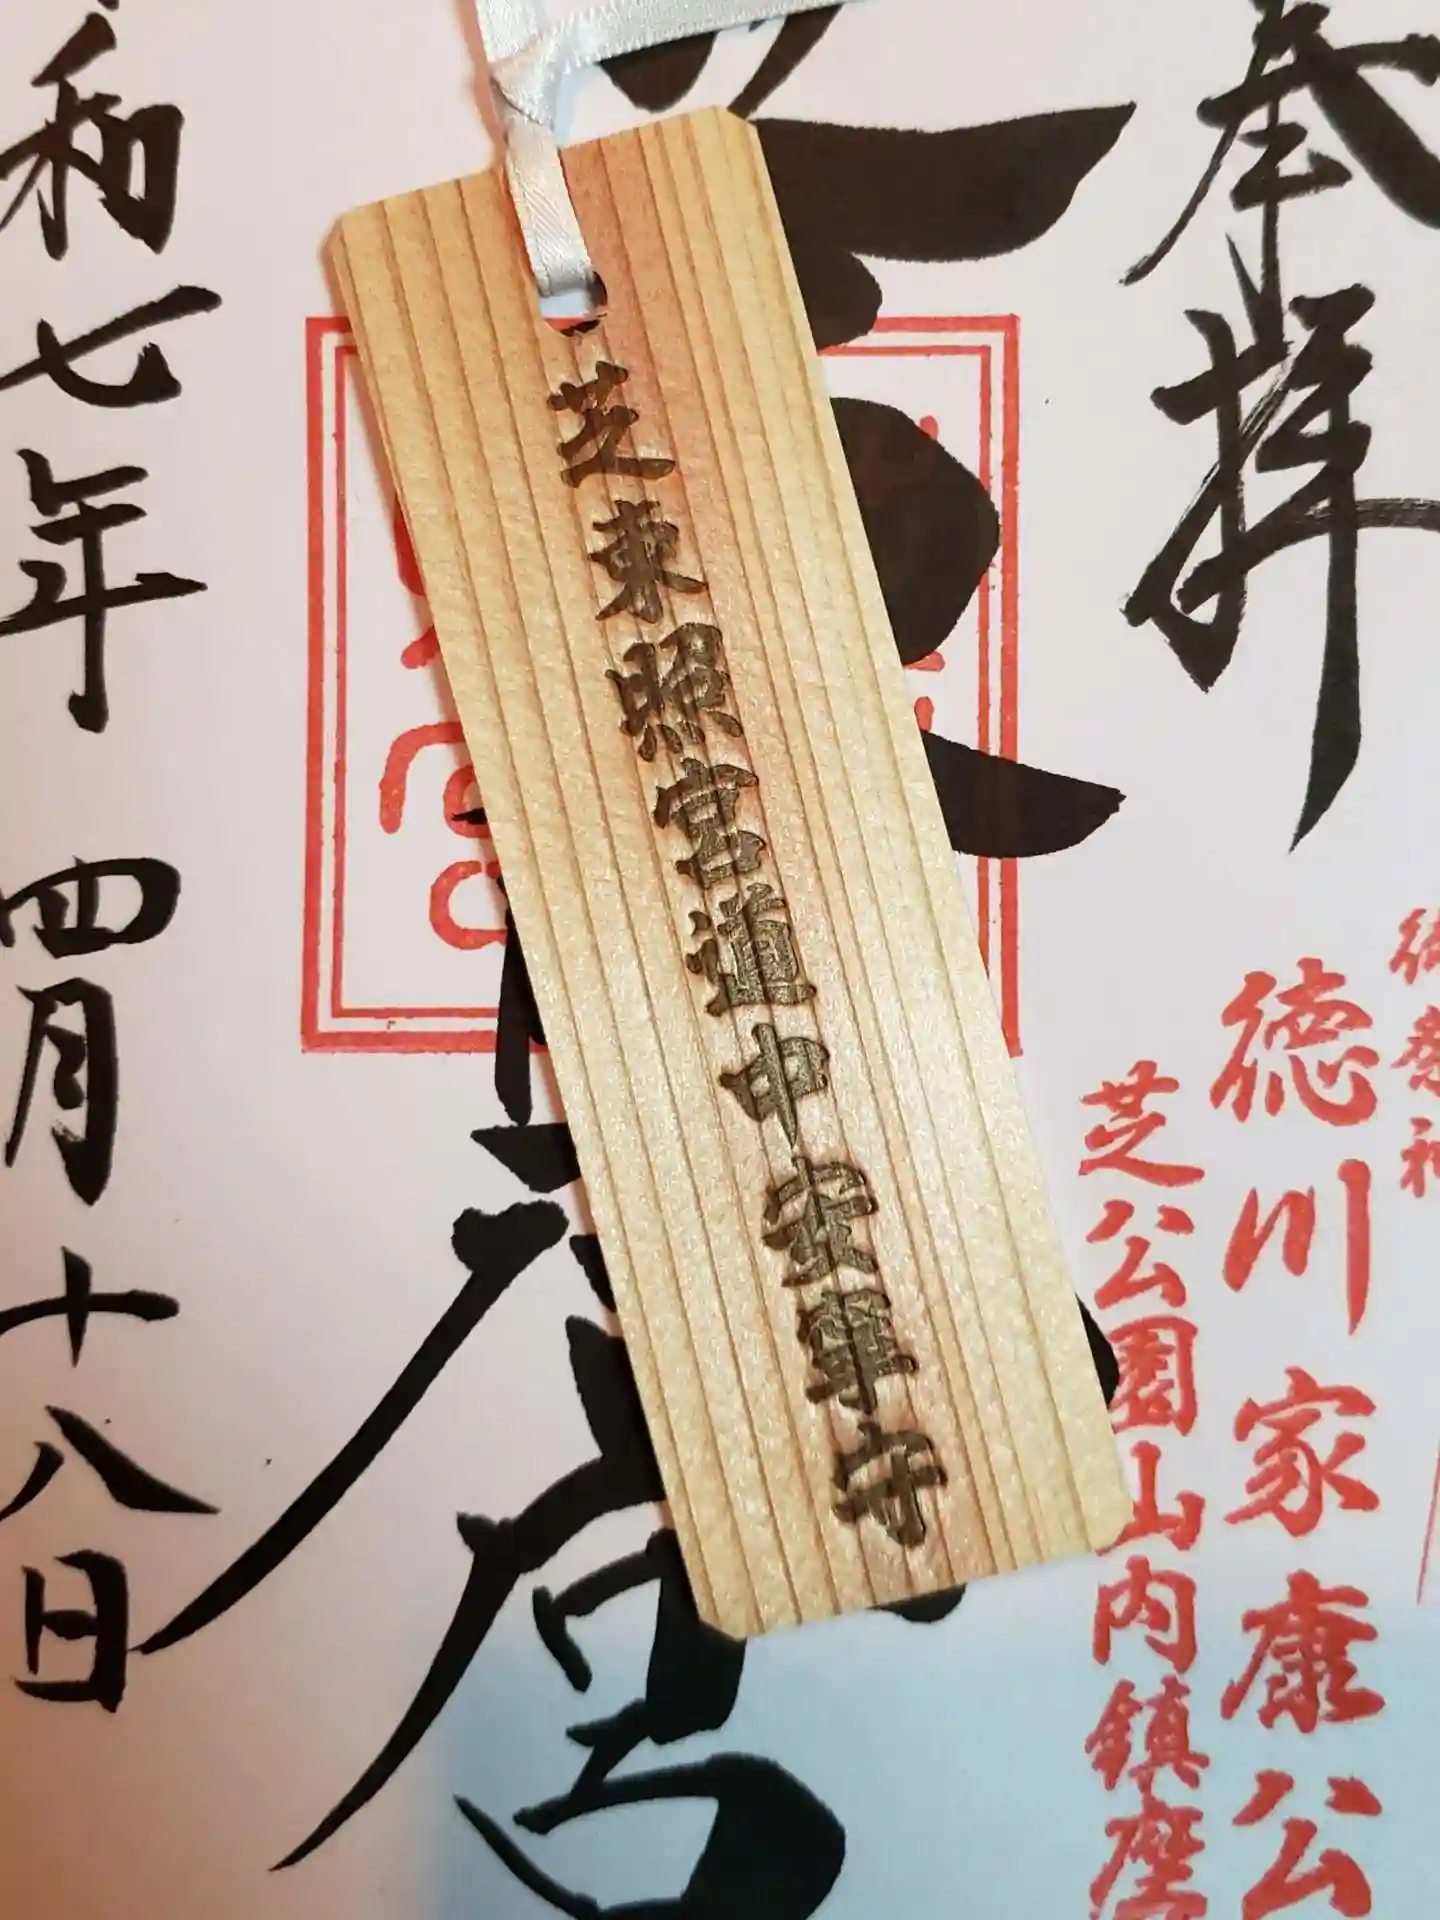 奉拝
御祭神
徳川家康公
芝公園山内鎮座
芝東照宮道中安寧守
和七年 四月十八日